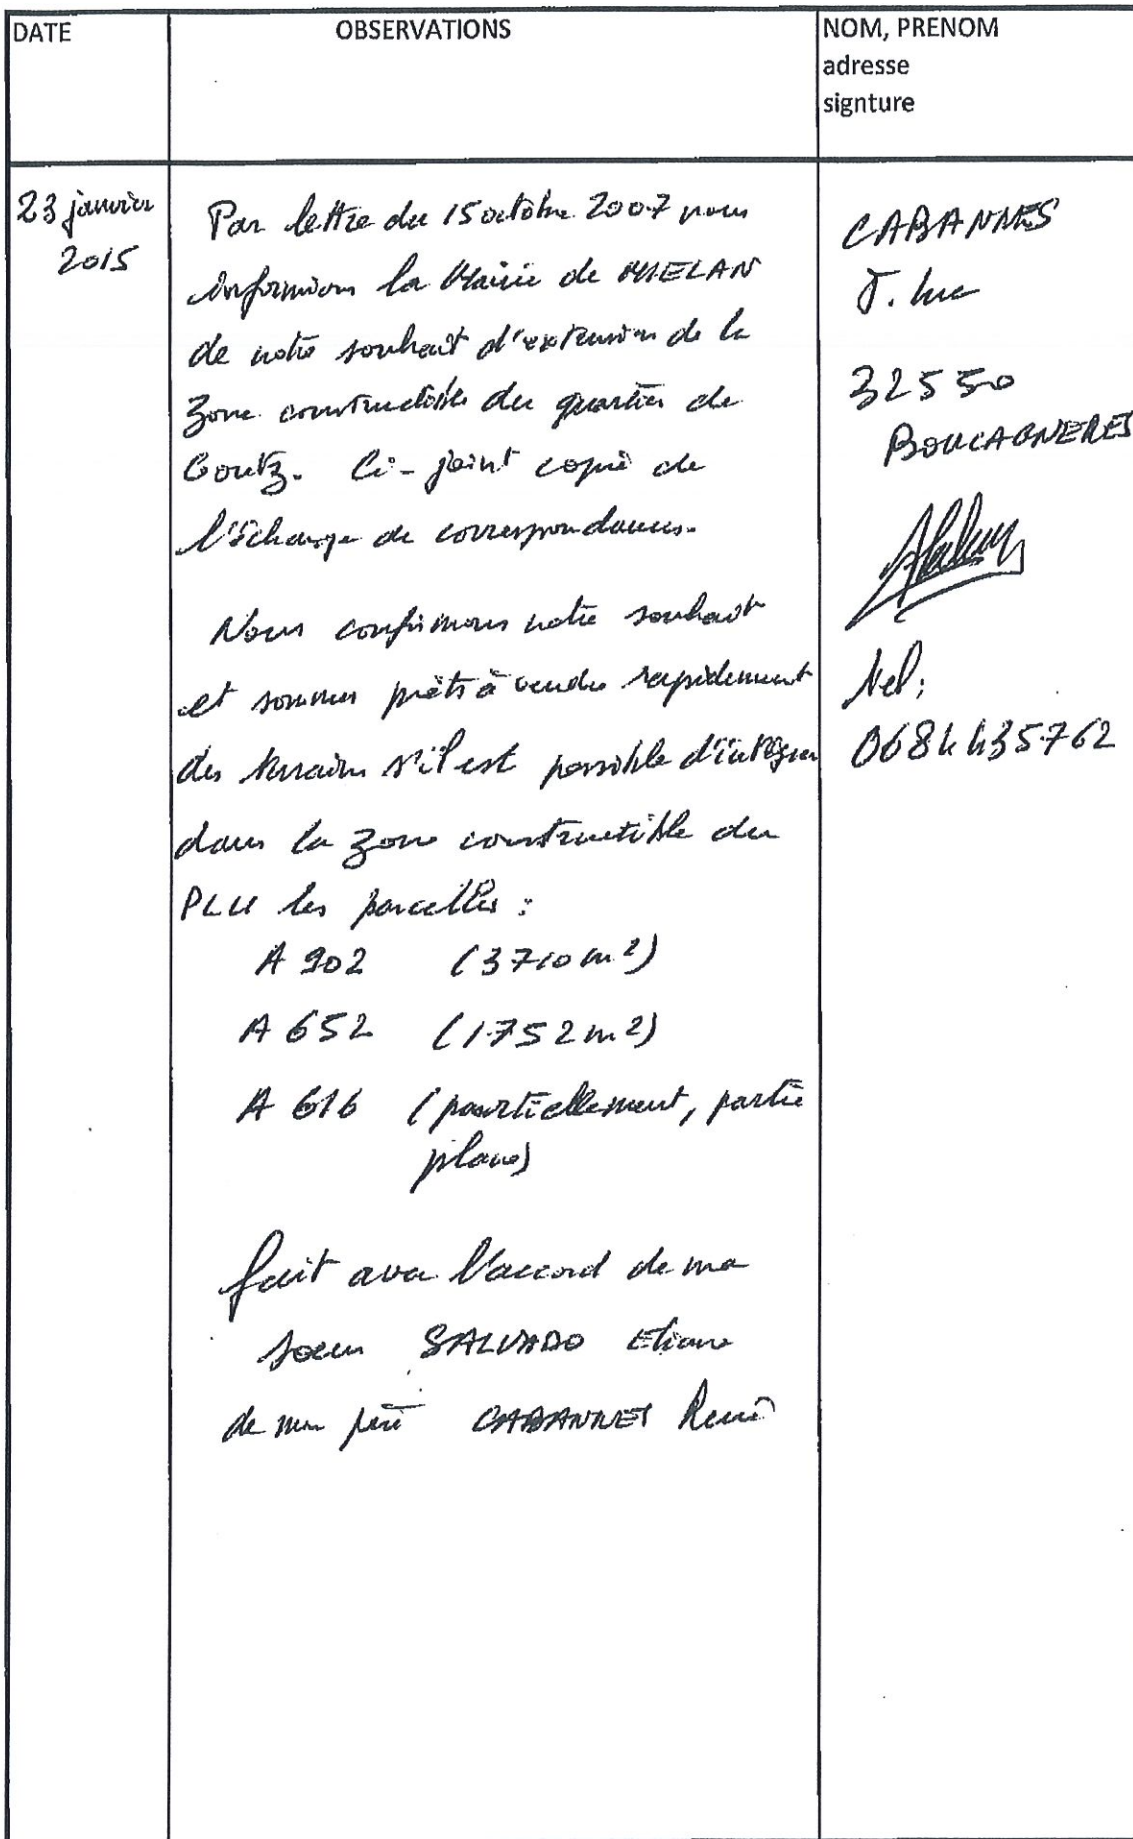 DATE
OBSERVATIONS
NOM, PRENOM
adresse
signture
23 janvier
2015
Par lettre du 15 octobre 2007 nous
informions la Mairie de MIELAN
de notre souhait d'extension de la
zone constructible du quartier de
Goutz. Ci-joint copie de
l'échange de correspondances.
Nous confirmons notre souhait
et sommes prêts à vendre rapidement
des terrains s'il est possible d'intégrer
dans la zone constructible du
PLU les parcelles :
A 902 (3710 m2)
A 652 (1752 m2)
A 616 (partiellement, partie
plane)
fait avec l'accord de ma
soeur SALVADO Eliane
de mon père CABANNES René
CABANNES
J. Luc
32550
BOUCAGNERES
tel:
0684435762